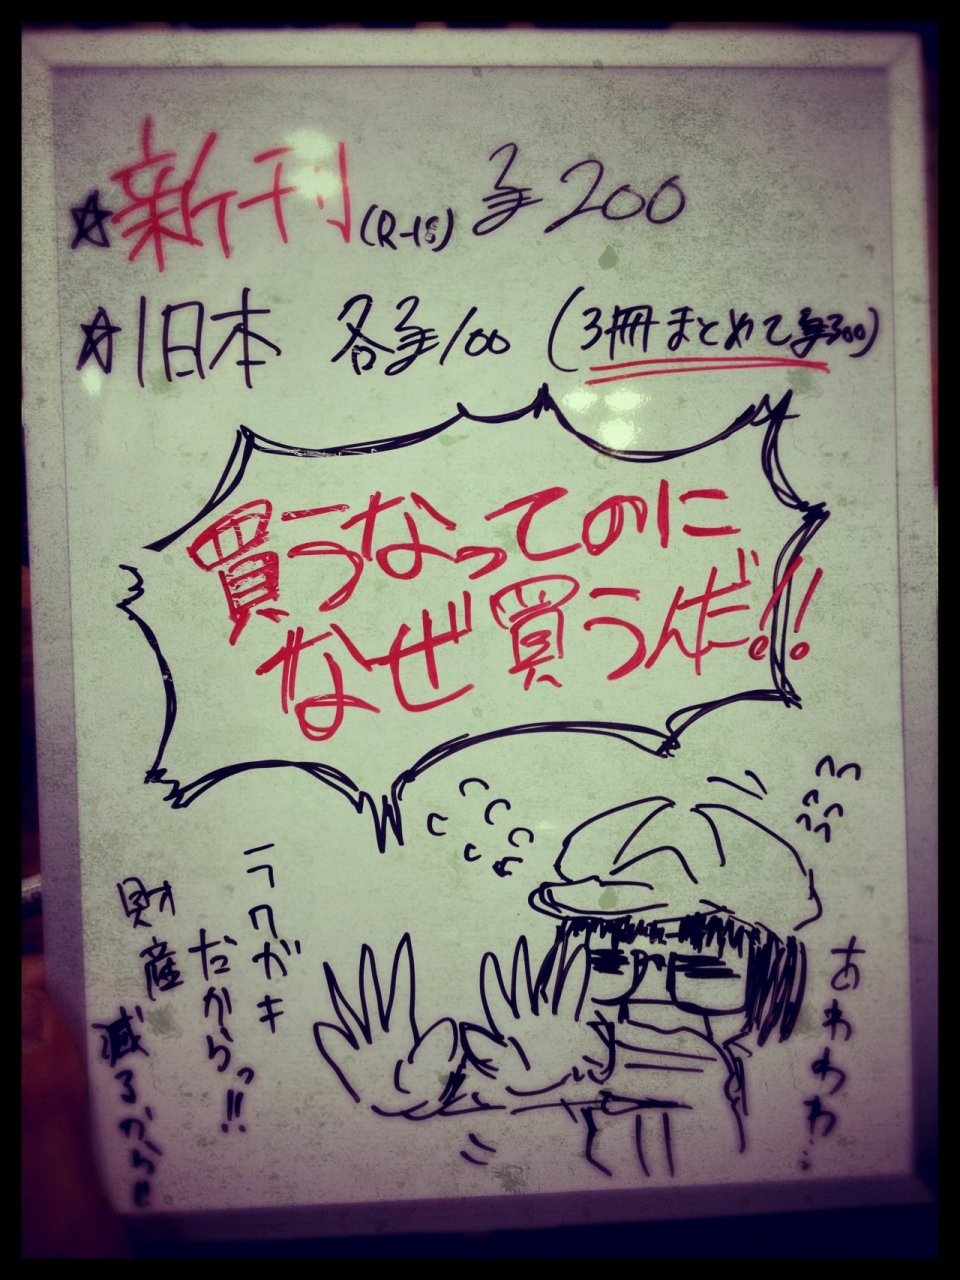 ☆新刊(R-18) ¥200
☆旧本 各¥100 (3冊まとめて¥300)
買うなってのに
なぜ買うんだ!!
あわわわ…
ラクガキ
だからっ!!
財産
減るから